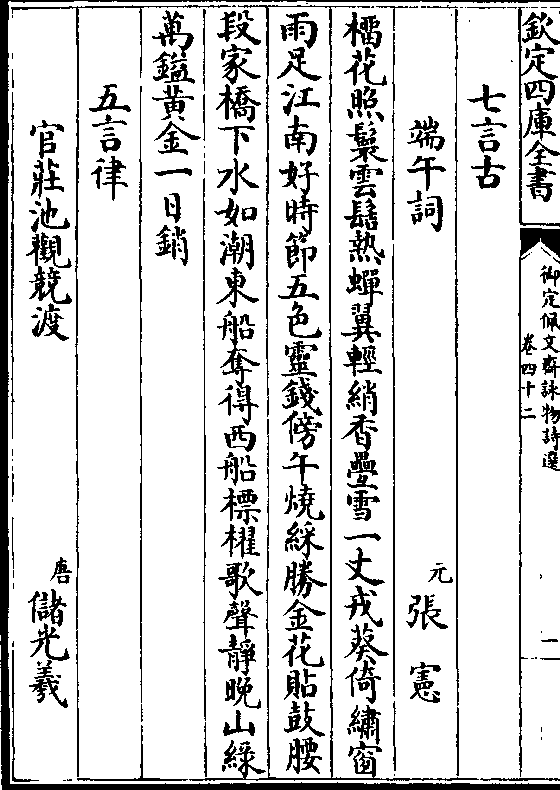 欽定四庫全書
御定佩文齋詠物詩選
卷四十二
二
七言古
端午詞
元
張憲
榴花照鬢雲髻熱蟬翼輕綃香疊雪一丈戎葵倚繡窗
雨足江南好時節五色靈錢傍午燒綵勝金花貼鼓腰
段家橋下水如潮東船奪得西船標櫂歌聲靜晚山綠
萬鎰黄金一日銷
五言律
官莊池觀競渡
唐
儲光羲